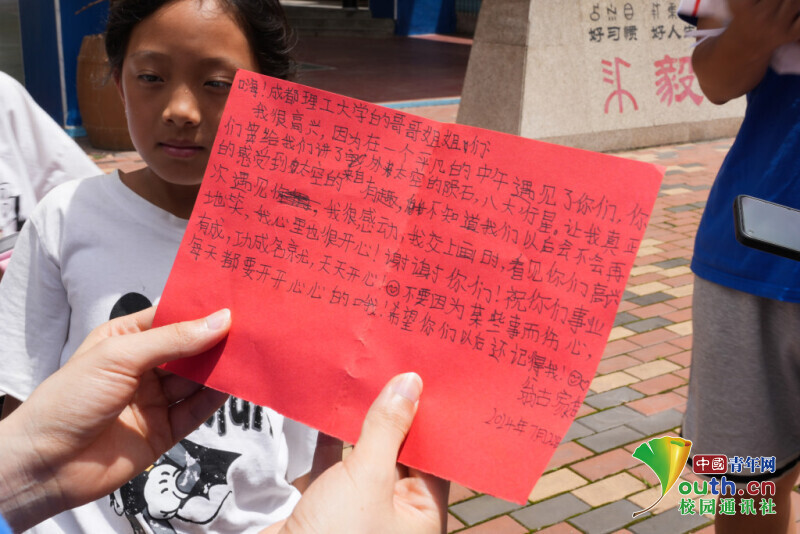 好习惯 好人
毅
嗨!成都理工大学的哥哥姐姐们
我很高兴,因为在一个平凡的中午遇见了你们,你
们曾给我们讲了来自外太空的陨石,八大行星。让我真正
的感受到太空的有趣,不知道我们以后会不会再
次遇见你,我很感动,我交上画时,看见你们高兴
地笑,我心里也很开心!谢谢你们!祝你们事业
有成,功成名就,天天开心,不要因为某些事而伤心,
每天都要开开心心的哦!希望你们以后还记得我!
2024年7月
中國青年网
Youth.cn
校园通讯社